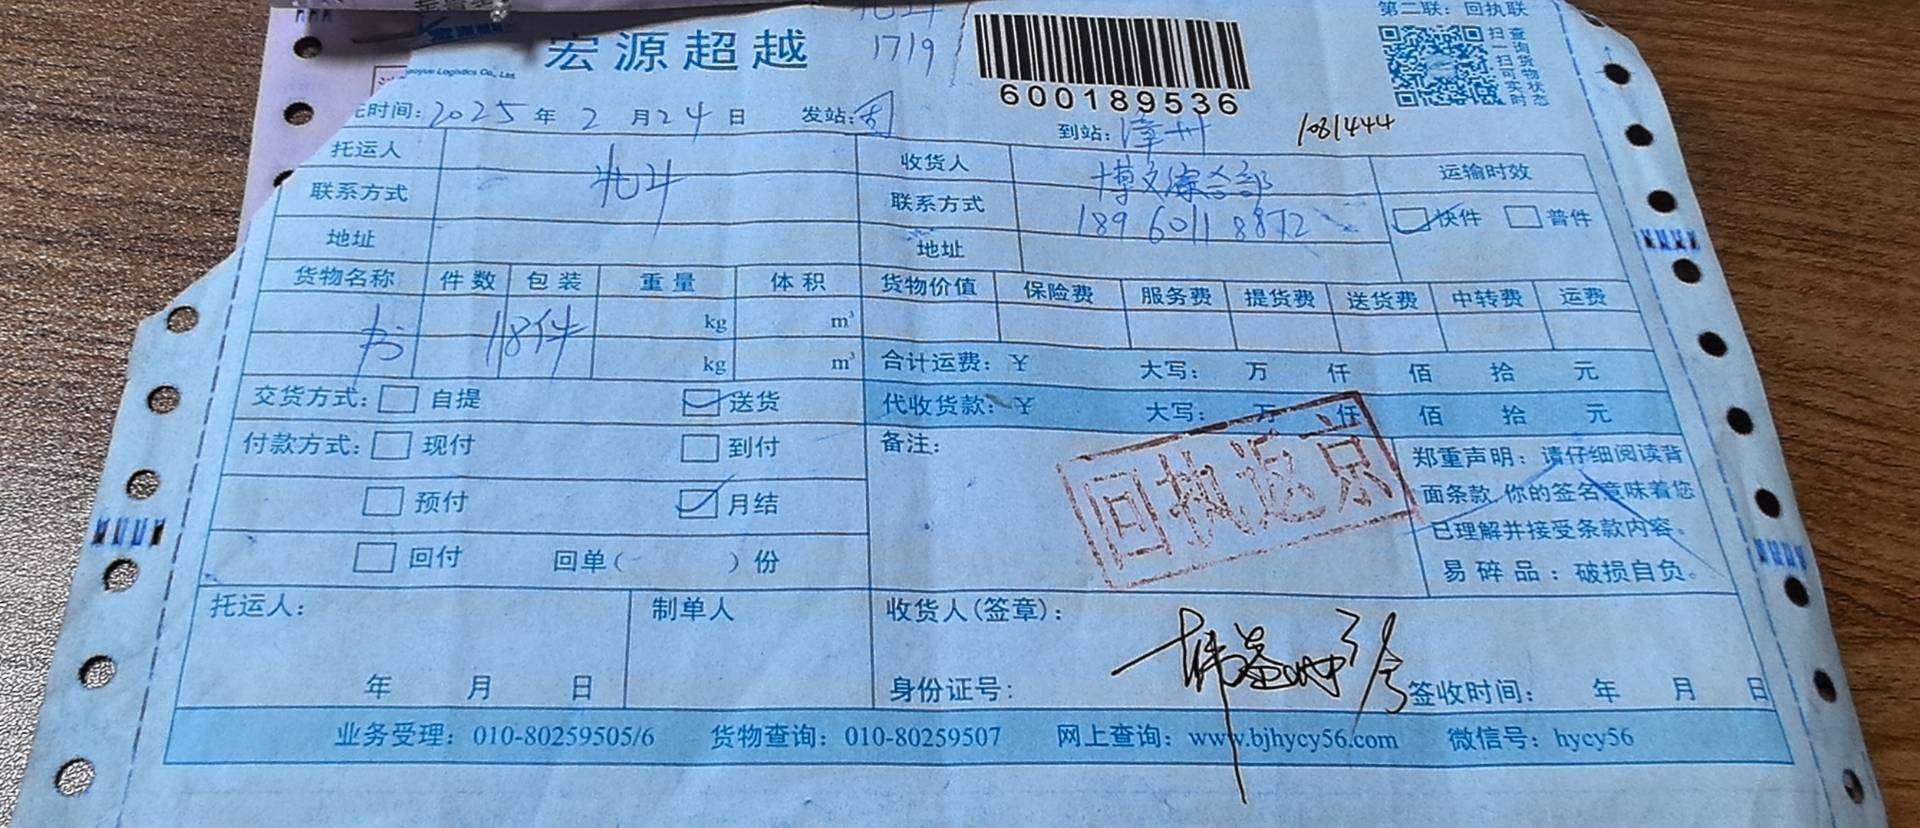 第二联：回执联
宏源超越
1719
600189536
扫查
一询
扫货
可物
实状
时态
时间：2025年2月24日
发站：
到站：漳州
1081444
托运人
北斗
收货人
博文综合部
运输时效
联系方式
联系方式
18960118872
快件
普件
地址
地址
货物名称 件数 包装 重量 体积 货物价值 保险费 服务费 提货费 送货费 中转费 运费
书 118件
kg m³
kg m³
合计运费：¥ 大写： 万 仟 佰 拾 元
交货方式： 自提 送货
代收货款：¥ 大写： 万 仟 佰 拾 元
付款方式： 现付 到付
备注：
回执返京
郑重声明：请仔细阅读背
面条款，你的签名意味着您
已理解并接受条款内容。
易碎品：破损自负。
预付 月结
回付 回单（ ）份
托运人：
制单人
收货人（签章）：
年 月 日
身份证号：
签收时间： 年 月 日
业务受理：010-80259505/6 货物查询：010-80259507 网上查询：www.bjhycy56.com 微信号：hycy56